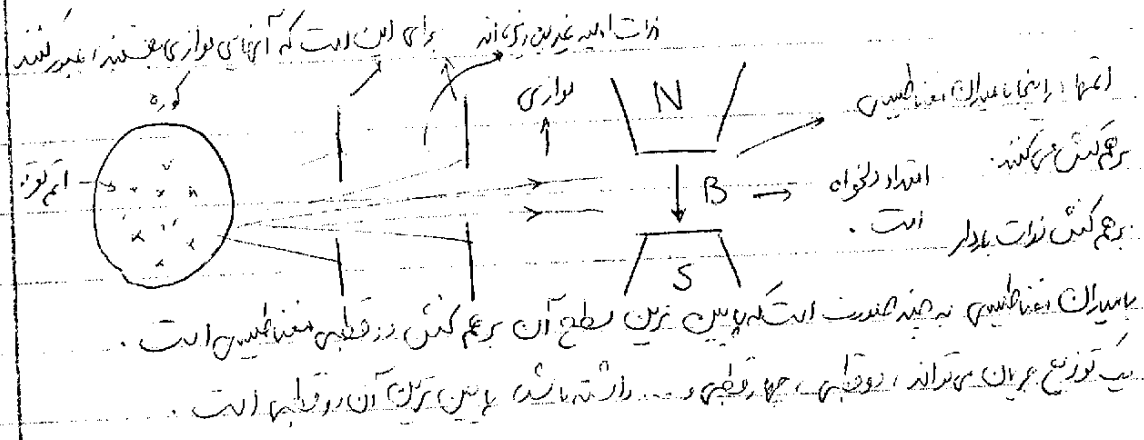 ذرات اولیه غیر بین زنی‌اند
برای این است که آنهایی موازی هستند، عبور کنند
کوره
موازی
N
اتمها در اینجا با میدان مغناطیسی
برهم کنش می‌کنند.
اتم نقره
B
امتداد دلخواه
است.
برهم کنش ذرات باردار
S
با میدان مغناطیسی به چند صورت است که پایین ترین سطح آن برهم کنش دوقطبی مغناطیسی است.
یک توزیع جریان می‌تواند، دوقطبی، چهارقطبی و .... داشته باشد، پایین ترین آن دوقطبی است.